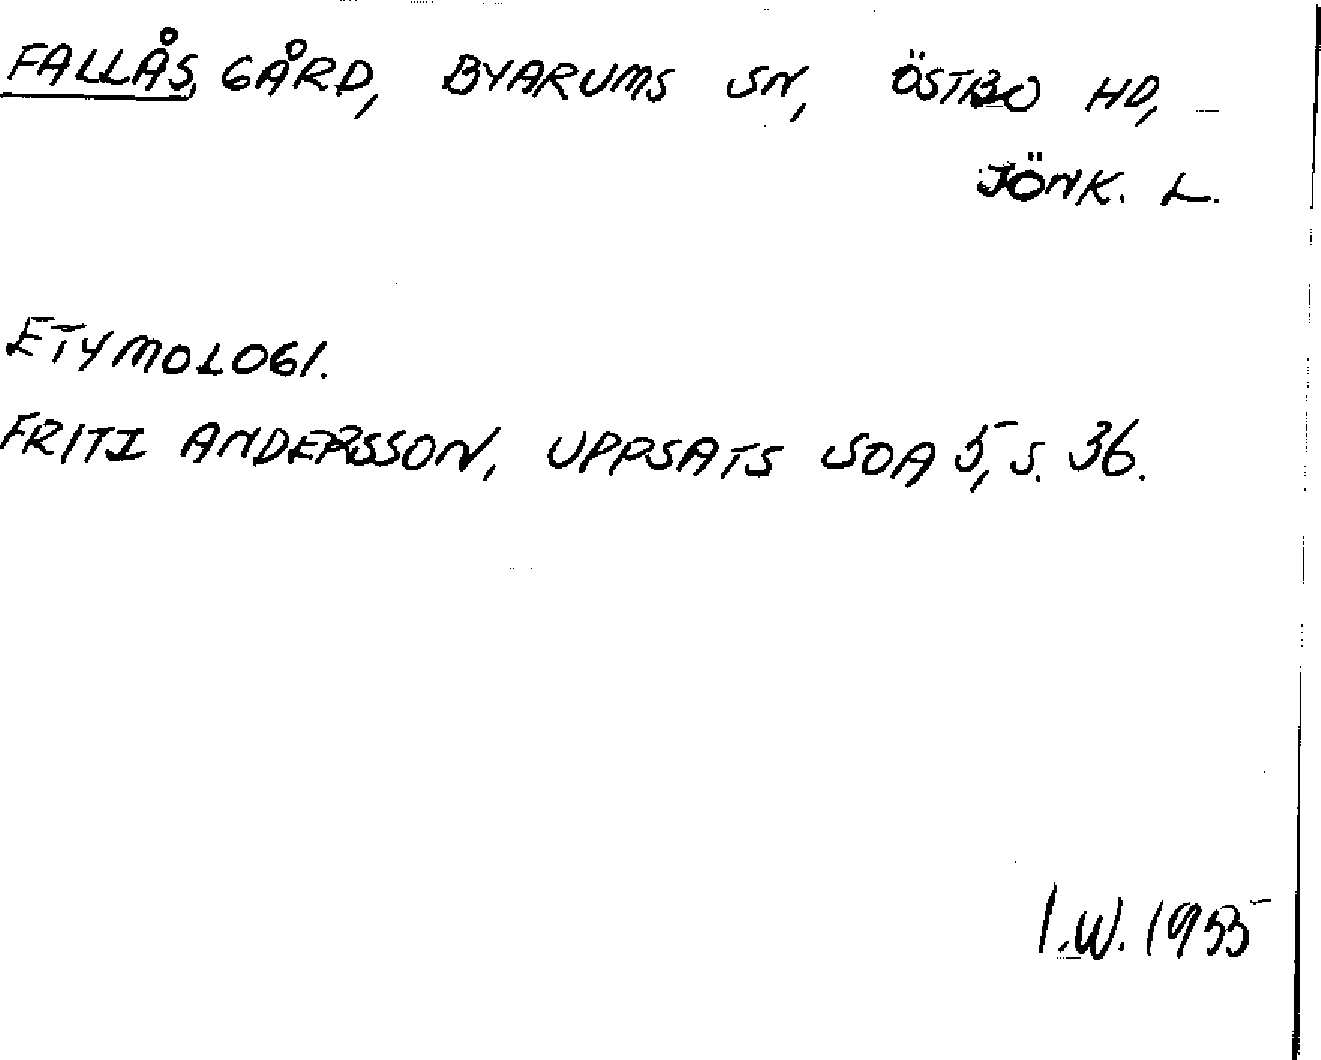 FALLÅS, GÅRD, BYARUMS SN, ÖSTBO HD,
JÖNK. L.
ETYMOLOGI.
FRITZ ANDERSSON, UPPSATS SOA 5, S. 36.
I.W. 1955